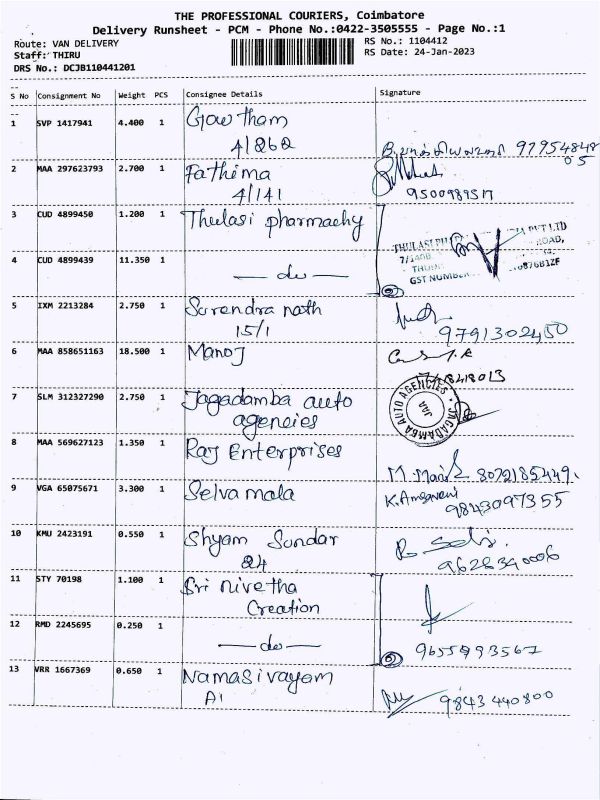 THE PROFESSIONAL COURIERS, Coimbatore
Delivery Runsheet - PCM - Phone No.:0422-3505555 - Page No.:1
Route: VAN DELIVERY
RS No.: 1104412
Staff: THIRU
RS Date: 24-Jan-2023
DRS No.: DCJB110441201
S No Consignment No Weight PCS Consignee Details Signature
1 SVP 1417941 4.400 1 Gowtham
4/262 97954848
05
2 MAA 297623793 2.700 1 Fathima
4/141 9500989517
3 CUD 4899450 1.200 1 Thulasi pharmachy
THULASI PVT LTD
ROAD,
4 CUD 4899439 11.350 1 — do —
GST NUMBER
5 IXM 2213284 2.750 1 Surendra nath
15/1 9791302450
6 MAA 858651163 18.500 1 Manoj
7 SLM 312327290 2.750 1 Jagadamba auto
agencies
JAGADAMBA AUTO AGENCIES
JAA
8 MAA 569627123 1.350 1 Raj Enterprises
8072185449.
9 VGA 65075671 3.300 1 Selva mala K. Amsaveni
9843097355
10 KMU 2423191 0.550 1 Shyam Sundar
24 9628390006
11 STY 70198 1.100 1 Sri nivetha
Creation
12 RMD 2245695 0.250 1 — do —
9655993567
13 VRR 1667369 0.650 1 Namasivayam
A1 9843440800